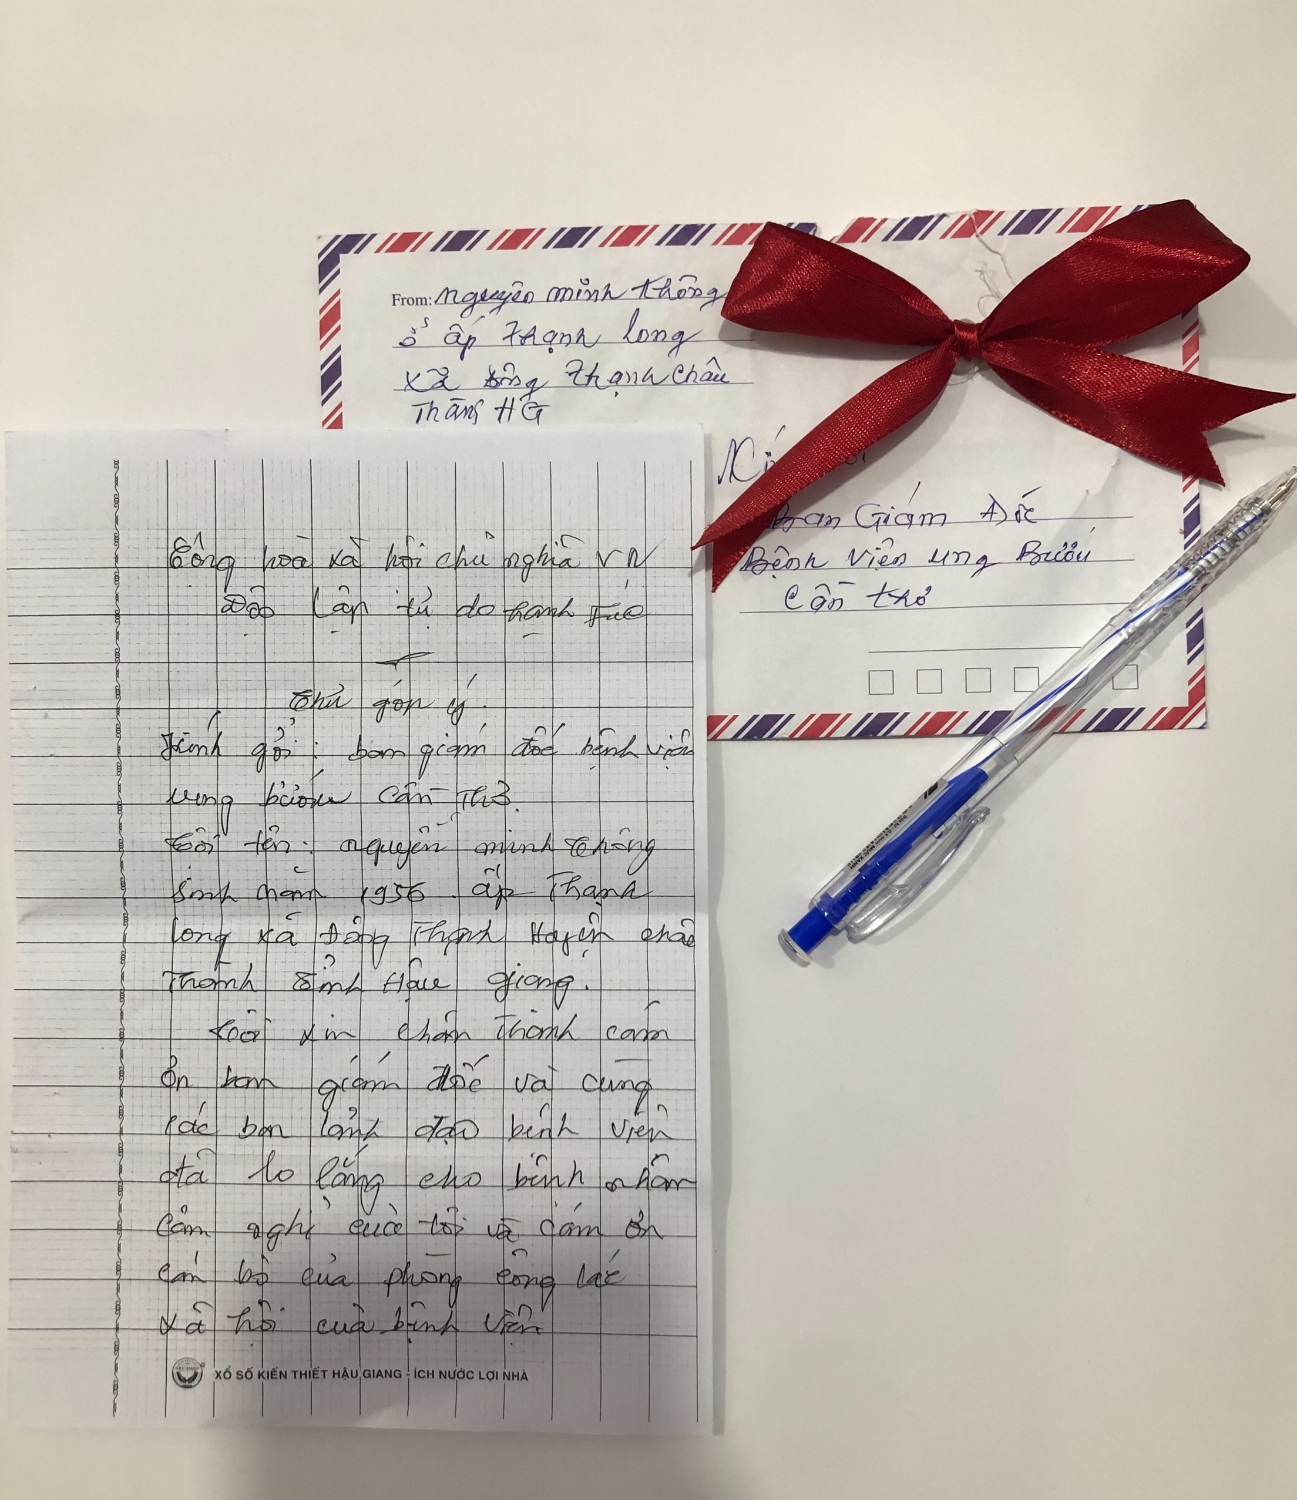 From: Nguyễn minh Thông
ở ấp Thạnh long
xã đông Thạnh Châu
Thành HG
Kính
Ban Giám Đốc
Bệnh Viện ung Bướu
Cần thơ
Cộng hoà xã hội chủ nghĩa VN
Độc lập tự do hạnh fúc
Thư góp ý.
Kính gởi: ban giám đốc bệnh viện
ung bướu Cần Thơ.
tôi tên: nguyễn minh thông
sinh năm 1956. ấp Thạnh
long xã Đông Thạnh Huyện châu
Thành Tỉnh Hậu giang.
tôi xin chân Thành cám
ơn ban giám đốc và cùng
các ban lảnh đạo bệnh viện
đã lo lắng cho bệnh nhân
cảm nghỉ của tôi và cám ơn
cán bộ của phòng công tác
xã hội của bệnh viện
XỔ SỐ KIẾN THIẾT HẬU GIANG - ÍCH NƯỚC LỢI NHÀ